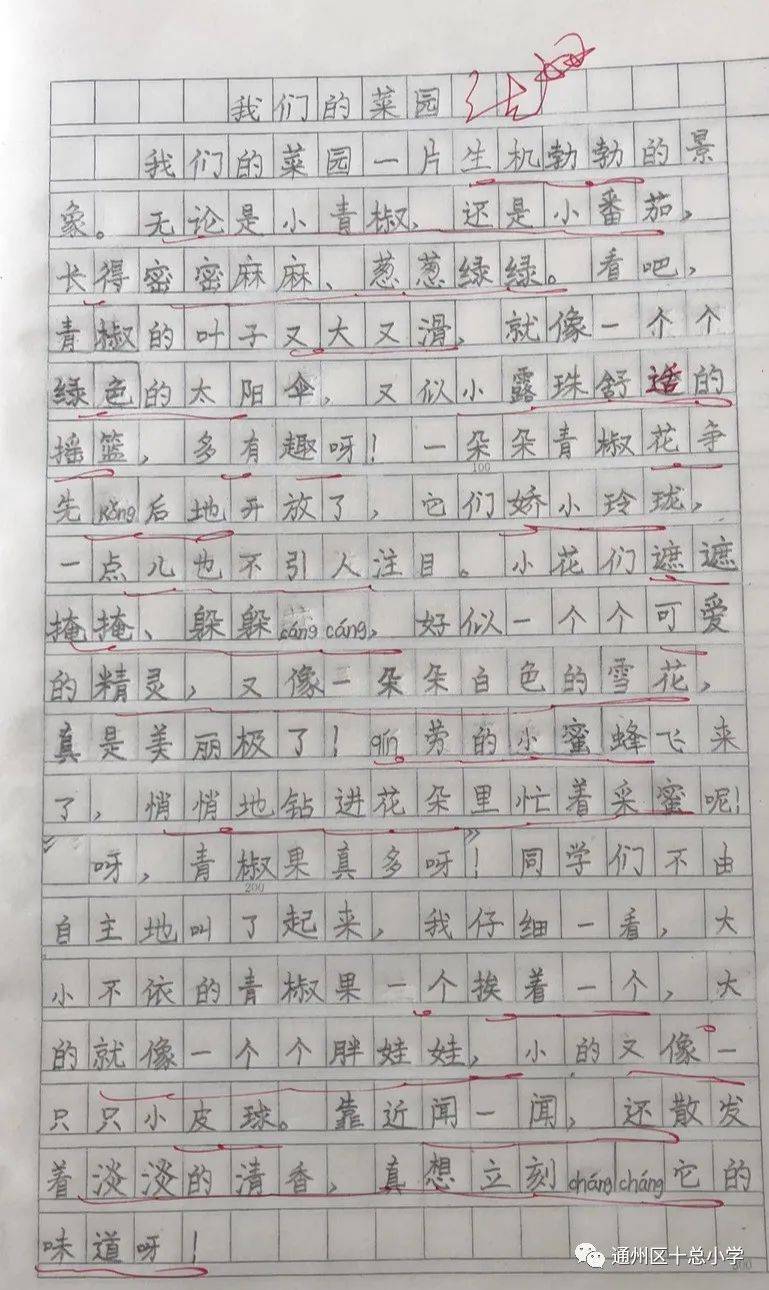 我们的菜园
我们的菜园一片生机勃勃的景
象。无论是小青椒,还是小番茄,
长得密密麻麻、葱葱绿绿。看吧,
青椒的叶子又大又滑,就像一个个
绿色的太阳伞,又似小露珠舒适的
摇篮,多有趣呀!一朵朵青椒花争
100
先kǒng后地开放了,它们娇小玲珑,
一点儿也不引人注目。小花们遮遮
掩掩、躲躲cáng cáng,好似一个个可爱
的精灵,又像一朵朵白色的雪花,
真是美丽极了!qín劳的小蜜蜂飞来
了,悄悄地钻进花朵里忙着采蜜呢!
“呀,青椒果真多呀!”同学们不由
200
自主地叫了起来,我仔细一看,大
小不依的青椒果一个挨着一个,大
的就像一个个胖娃娃,小的又像一
只只小皮球。靠近闻一闻,还散发
着淡淡的清香,真想立刻cháng cháng它的
味道呀!
300
通州区十总小学